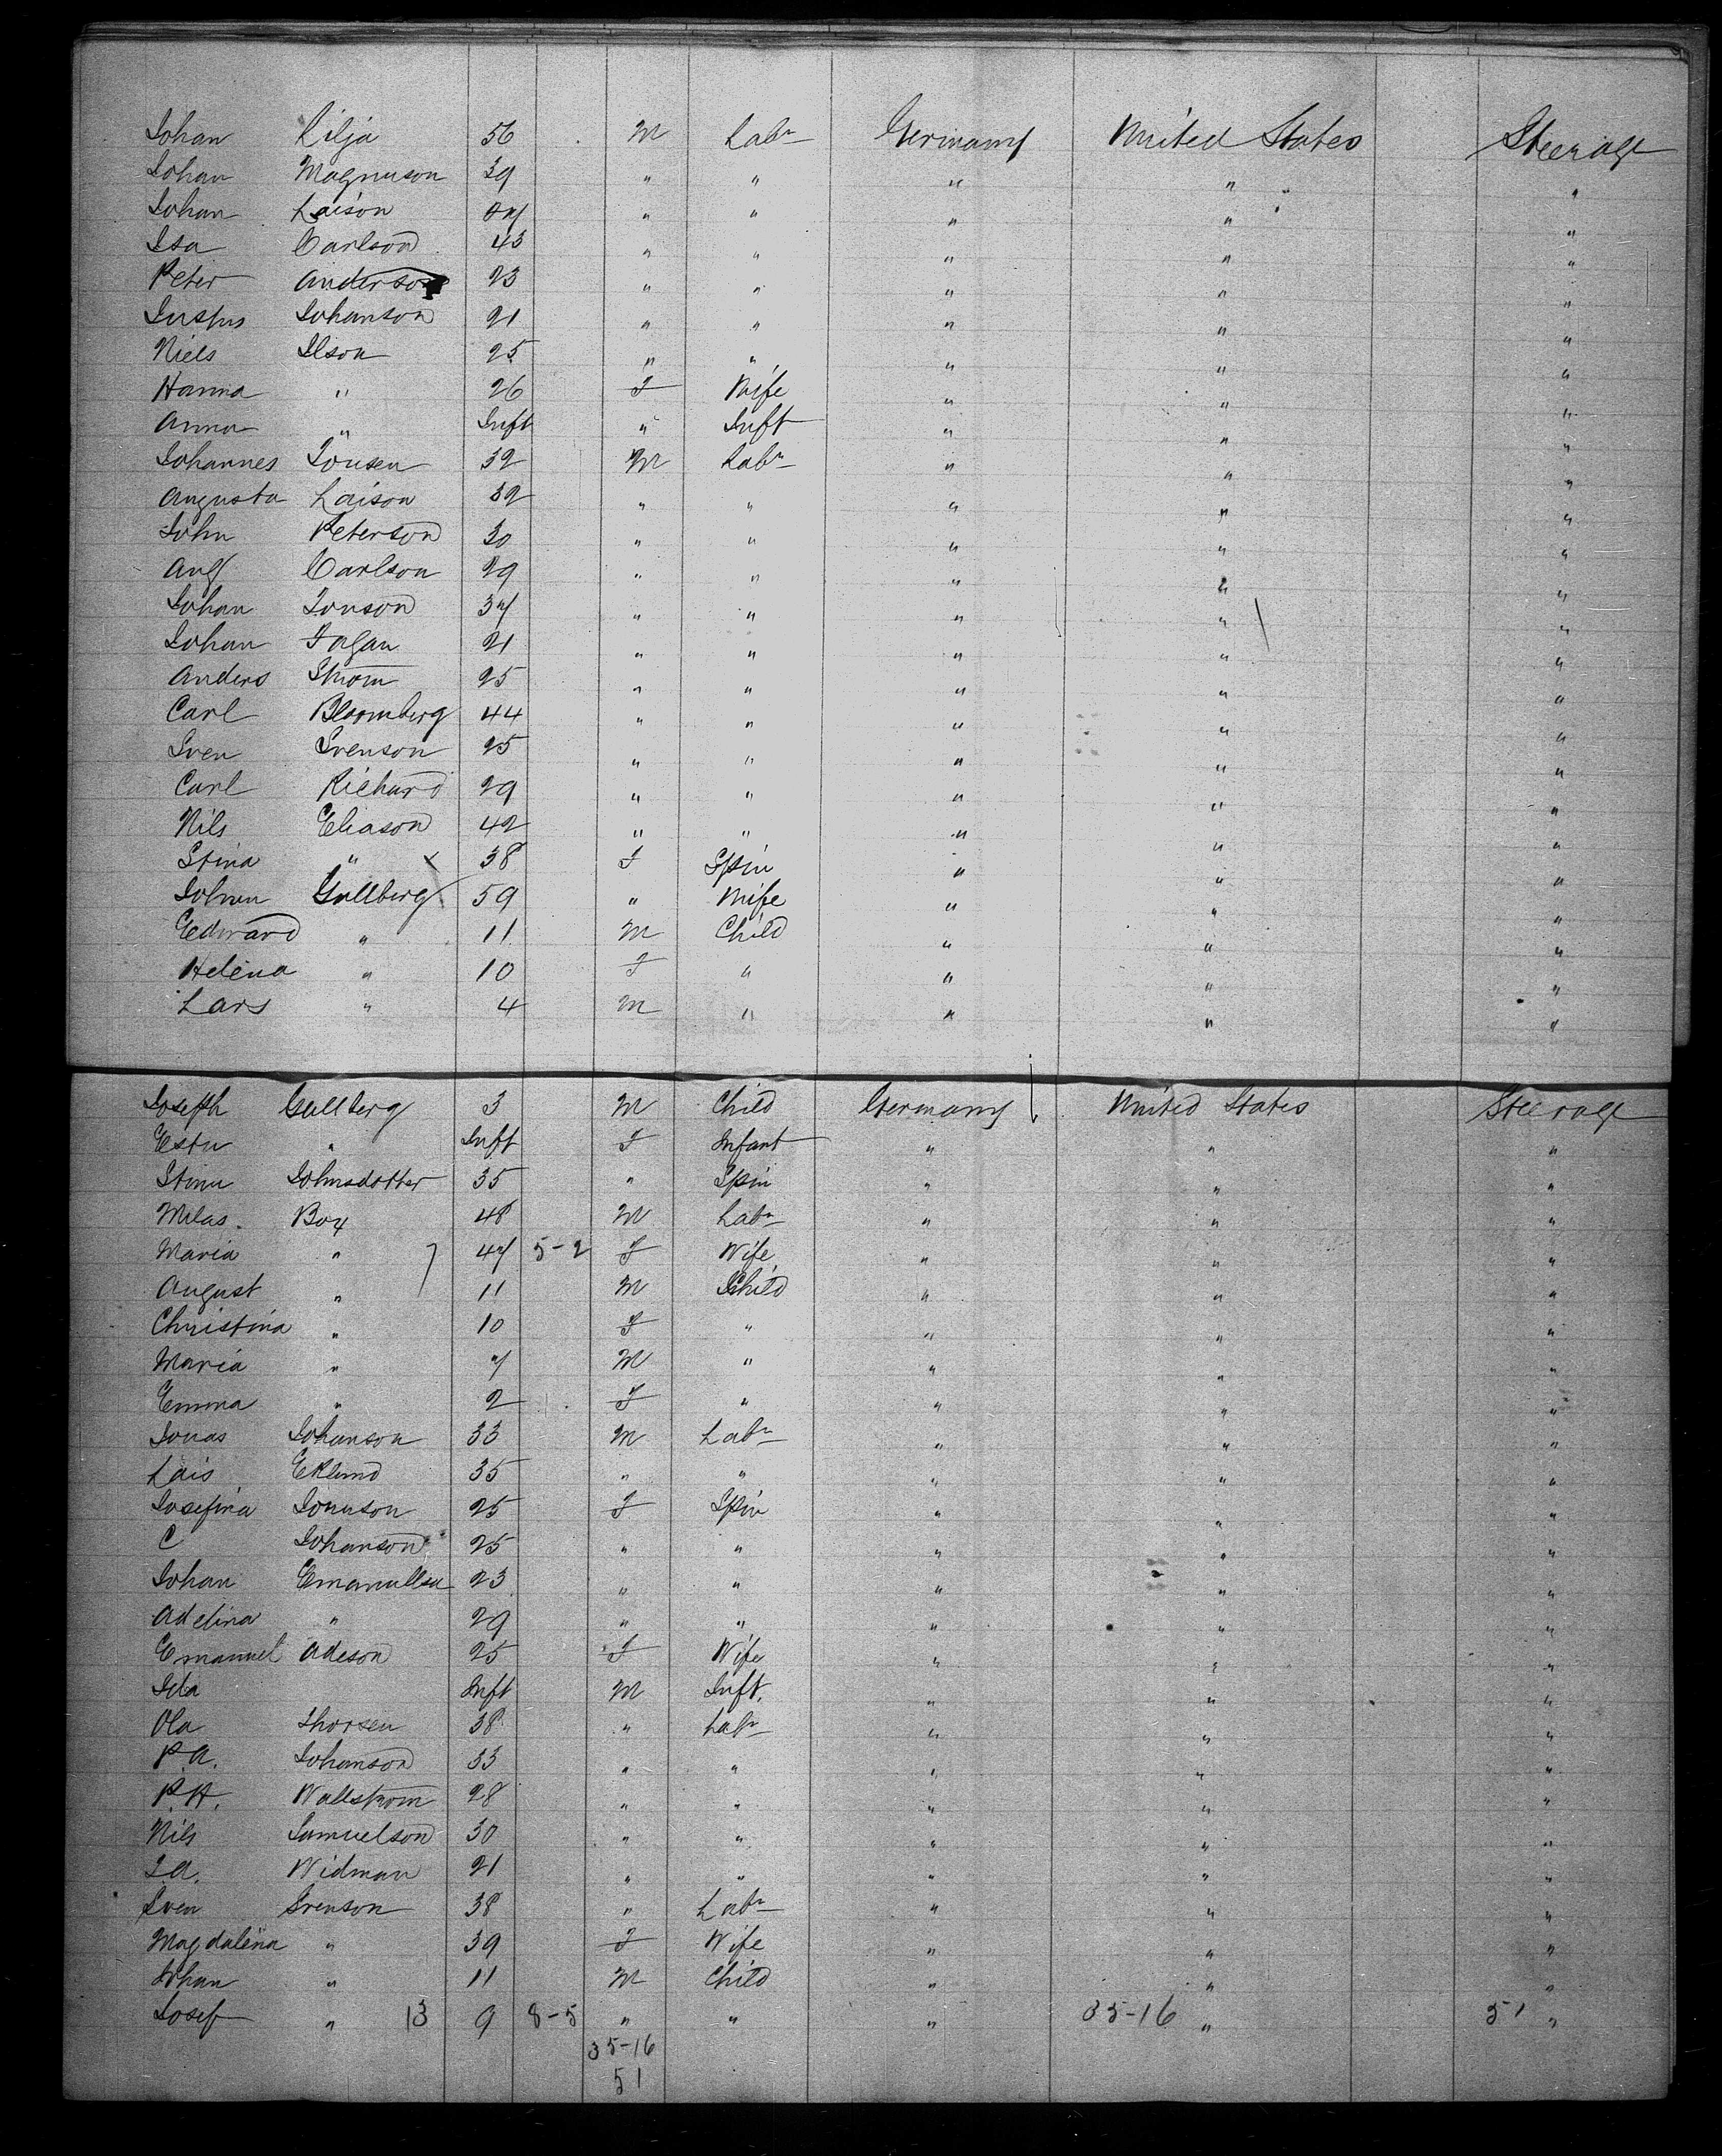 Johan Lilja 56 M Labr Germany United States Steerage
Johan Magnuson 39 " " " " "
Johan Laison 47 " " " " "
Isa Carlson 43 " " " " "
Peter Anderson 23 " " " " "
Justus Johanson 21 " " " " "
Niels Ilson 25 " " " " "
Hanna " 26 F Wife " " "
Anna " Inft " Inft " " "
Johannes Jonsen 32 M Labr " " "
Augusta Laison 32 " " " " "
John Peterson 30 " " " " "
Aug Carlson 29 " " " " "
Johan Jonson 37 " " " " "
Johan Fagan 21 " " " " "
Anders Strom 25 " " " " "
Carl Bloomberg 44 " " " " "
Sven Svenson 25 " " " " "
Carl Richard 29 " " " " "
Nils Eliason 42 " " " " "
Stina " x 38 F Spin " " "
Gullberg 59 " Wife " " "
Edward " 11 M Child " " "
Helena " 10 F " " " "
Lars " 4 M " " " "
Joseph Gullberg 3 M Child Germany United States Steerage
" Inft F Infant " " "
Stina Johnsdotter 35 " Spin " " "
Milas. Boy 48 M Labr " " "
Maria " 7 47 5-2 F Wife " " "
August " 11 M Child " " "
Christina " 10 F " " " "
Maria " 7 M " " " "
Emma " 2 F " " " "
Jonas Johanson 33 M Labr " " "
Lais Eklund 35 " " " " "
Josefina Jonuson 25 F Spin " " "
C Johanson 25 " " " " "
Johan 23 " " " " "
Adelina " 29 " " " " "
Emanuel Adeson 25 F Wife " " "
Ida Inft M Inft. " " "
Ola Thorsen 38 " Labr " " "
P.A. Johanson 33 " " " " "
P.H. Wallstrom 28 " " " " "
Nils Samuelson 30 " " " " "
J.A. Widman 21 " " " " "
Sven Svenson 38 " Labr " " "
Magdalena " 39 F Wife " " "
Johan " 11 M Child " " "
Josef " 13 9 8-5 " " " 35-16 " 51 "
35-16
51